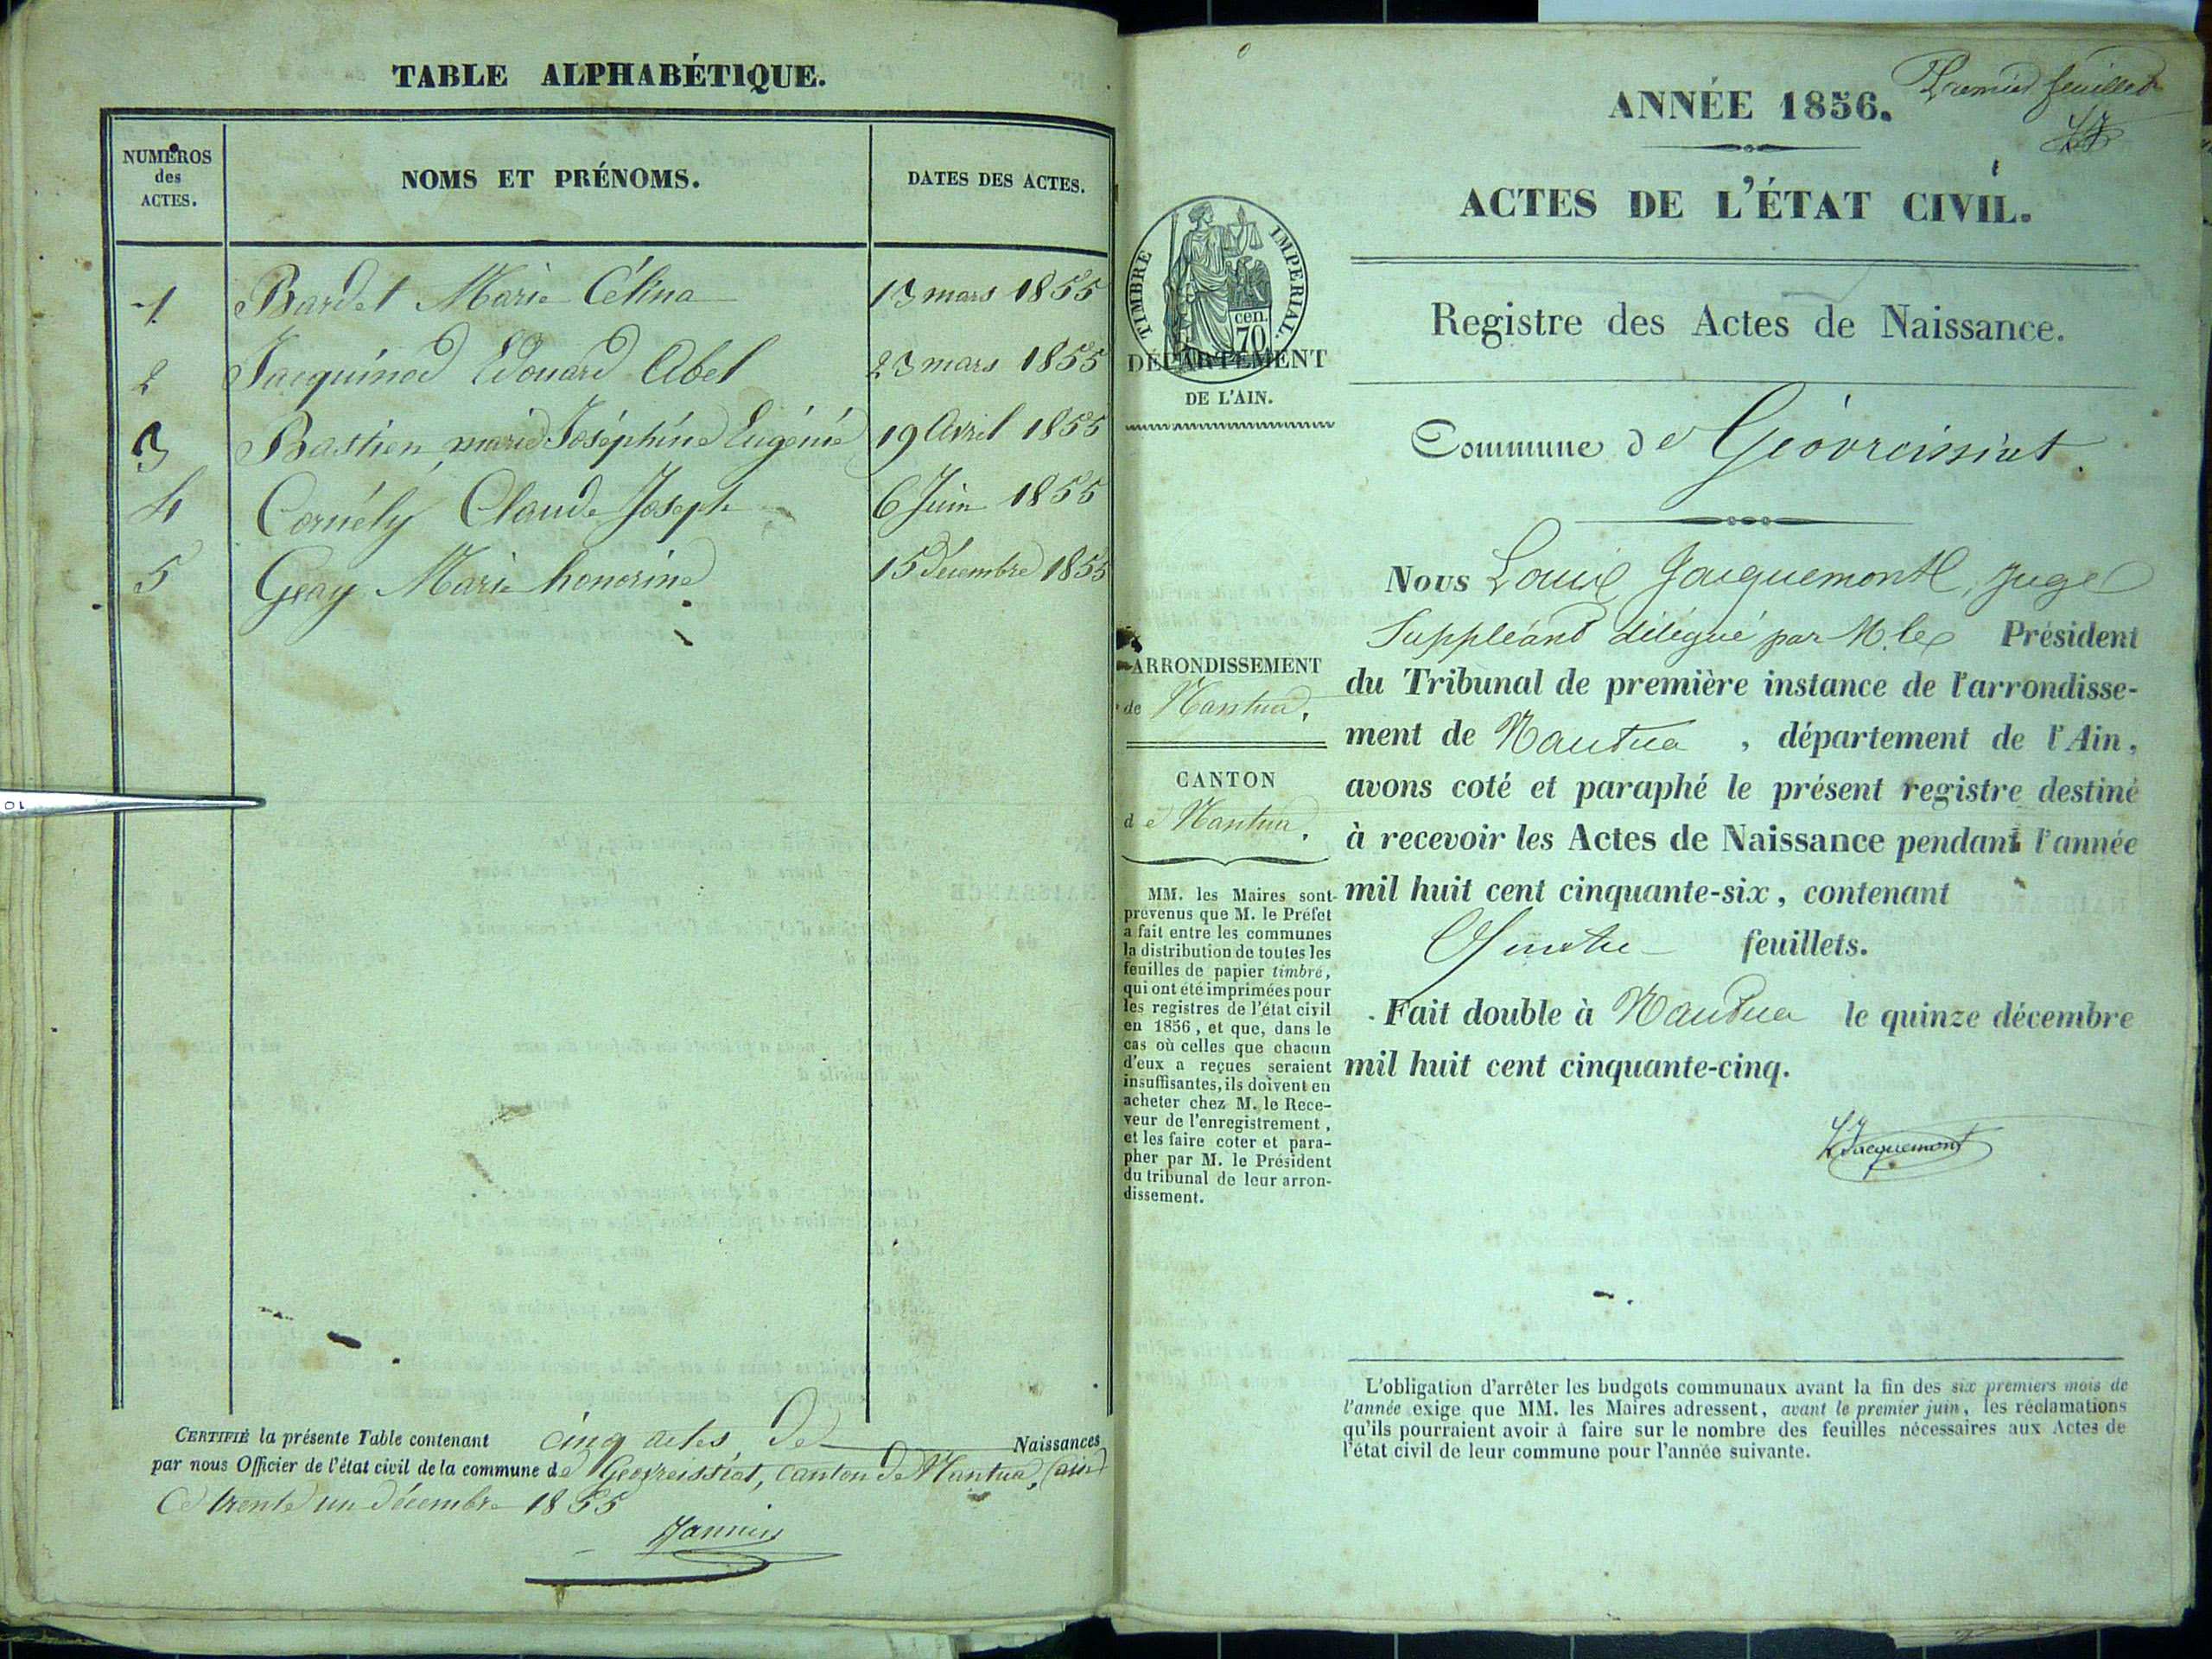 TABLE ALPHABÉTIQUE.
NUMÉROS des ACTES. NOMS ET PRÉNOMS. DATES DES ACTES.
1 Bardet Marie Célina 13 mars 1855
2 Jacquinod Edouard Abel 23 mars 1855
3 Bastien, marie Joséphine Eugénie 19 Avril 1855
4 Cornély Claude Joseph 6 Juin 1855
5 Geay Marie honorine 15 Décembre 1855
CERTIFIÉ la présente Table contenant cinq actes de Naissances
par nous Officier de l'état civil de la commune de Geovreissiat, canton de Nantua, (ain)
Ce trente un décembre 1855
Premier feuillet
ANNÉE 1856.
ACTES DE L'ÉTAT CIVIL.
Registre des Actes de Naissance.
Commune de Géovreissiat.
TIMBRE IMPERIAL.
cen.
70
DÉPARTEMENT
DE L'AIN.
ARRONDISSEMENT
de Nantua.
CANTON
de Nantua.
MM. les Maires sont
prévenus que M. le Préfet
a fait entre les communes
la distribution de toutes les
feuilles de papier timbré,
qui ont été imprimées pour
les registres de l'état civil
en 1856, et que, dans le
cas où celles que chacun
d'eux a reçues seraient
insuffisantes, ils doivent en
acheter chez M. le Rece-
veur de l'enregistrement,
et les faire coter et para-
pher par M. le Président
du tribunal de leur arron-
dissement.
Nous Louis Jacquemont, Juge
Suppléant délégué par M. le Président
du Tribunal de première instance de l'arrondisse-
ment de Nantua, département de l'Ain,
avons coté et paraphé le présent registre destiné
à recevoir les Actes de Naissance pendant l'année
mil huit cent cinquante-six, contenant
Quatre feuillets.
Fait double à Nantua le quinze décembre
mil huit cent cinquante-cinq.
Jacquemont
L'obligation d'arrêter les budgets communaux avant la fin des six premiers mois de
l'année exige que MM. les Maires adressent, avant le premier juin, les réclamations
qu'ils pourraient avoir à faire sur le nombre des feuilles nécessaires aux Actes de
l'état civil de leur commune pour l'année suivante.